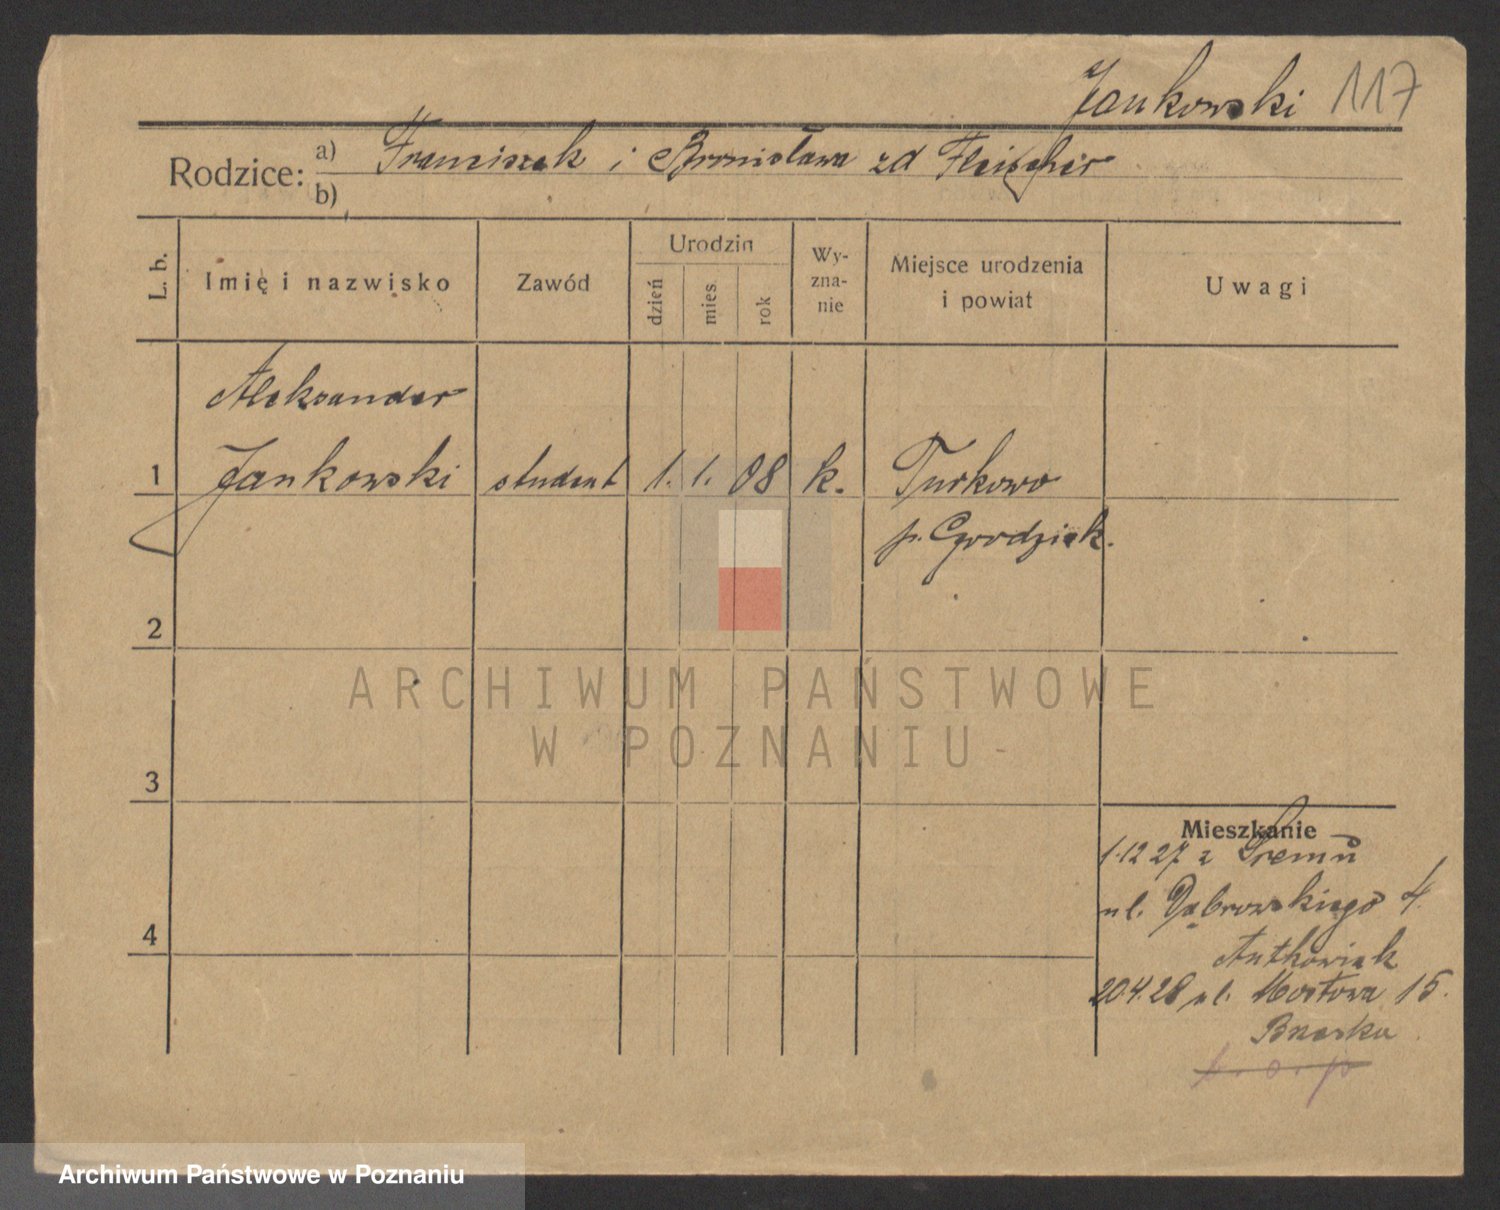 Jankowski 117
Rodzice: a) Franciszek i Bronisława zd Fleischer
b)
L. b. Imię i nazwisko Zawód Urodzin dzień mies. rok Wy-zna-nie Miejsce urodzenia i powiat Uwagi
Aleksander
1 Jankowski student 1. 1. 08 k. Turkowo
p. Grodzisk.
2
ARCHIWUM PAŃSTWOWE
W POZNANIU
3
Mieszkanie
1.12 27 z Śremu
ul. Dąbrowskiego 4.
4
Antkowiak
20.4.28 ul. Mostowa 15.
Archiwum Państwowe w Poznaniu